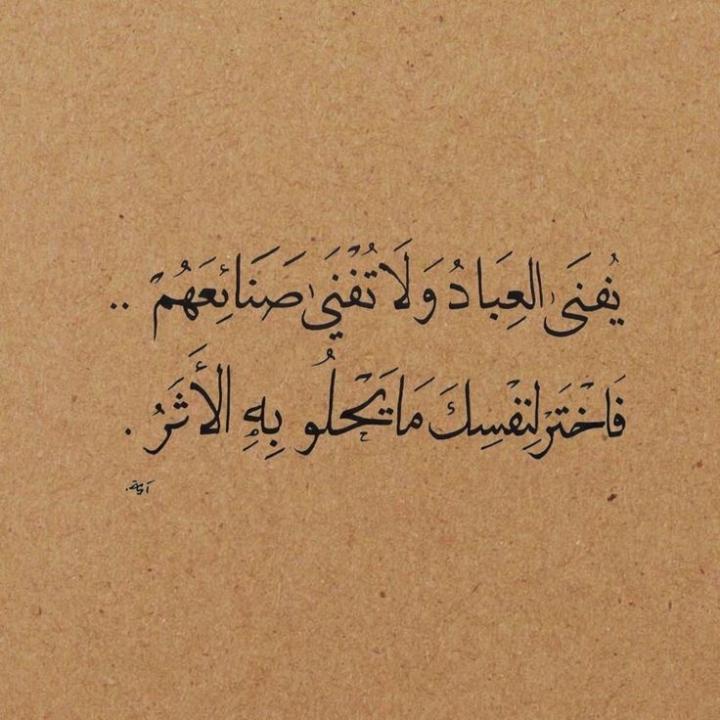 يُفنَى العِبَادُ وَلَا تُفْنَى صَنَائِعَهُمْ ..
فَاخْتَرْ لِنَفْسِكَ مَا يَحْلُو بِهِ الأَثَرُ .